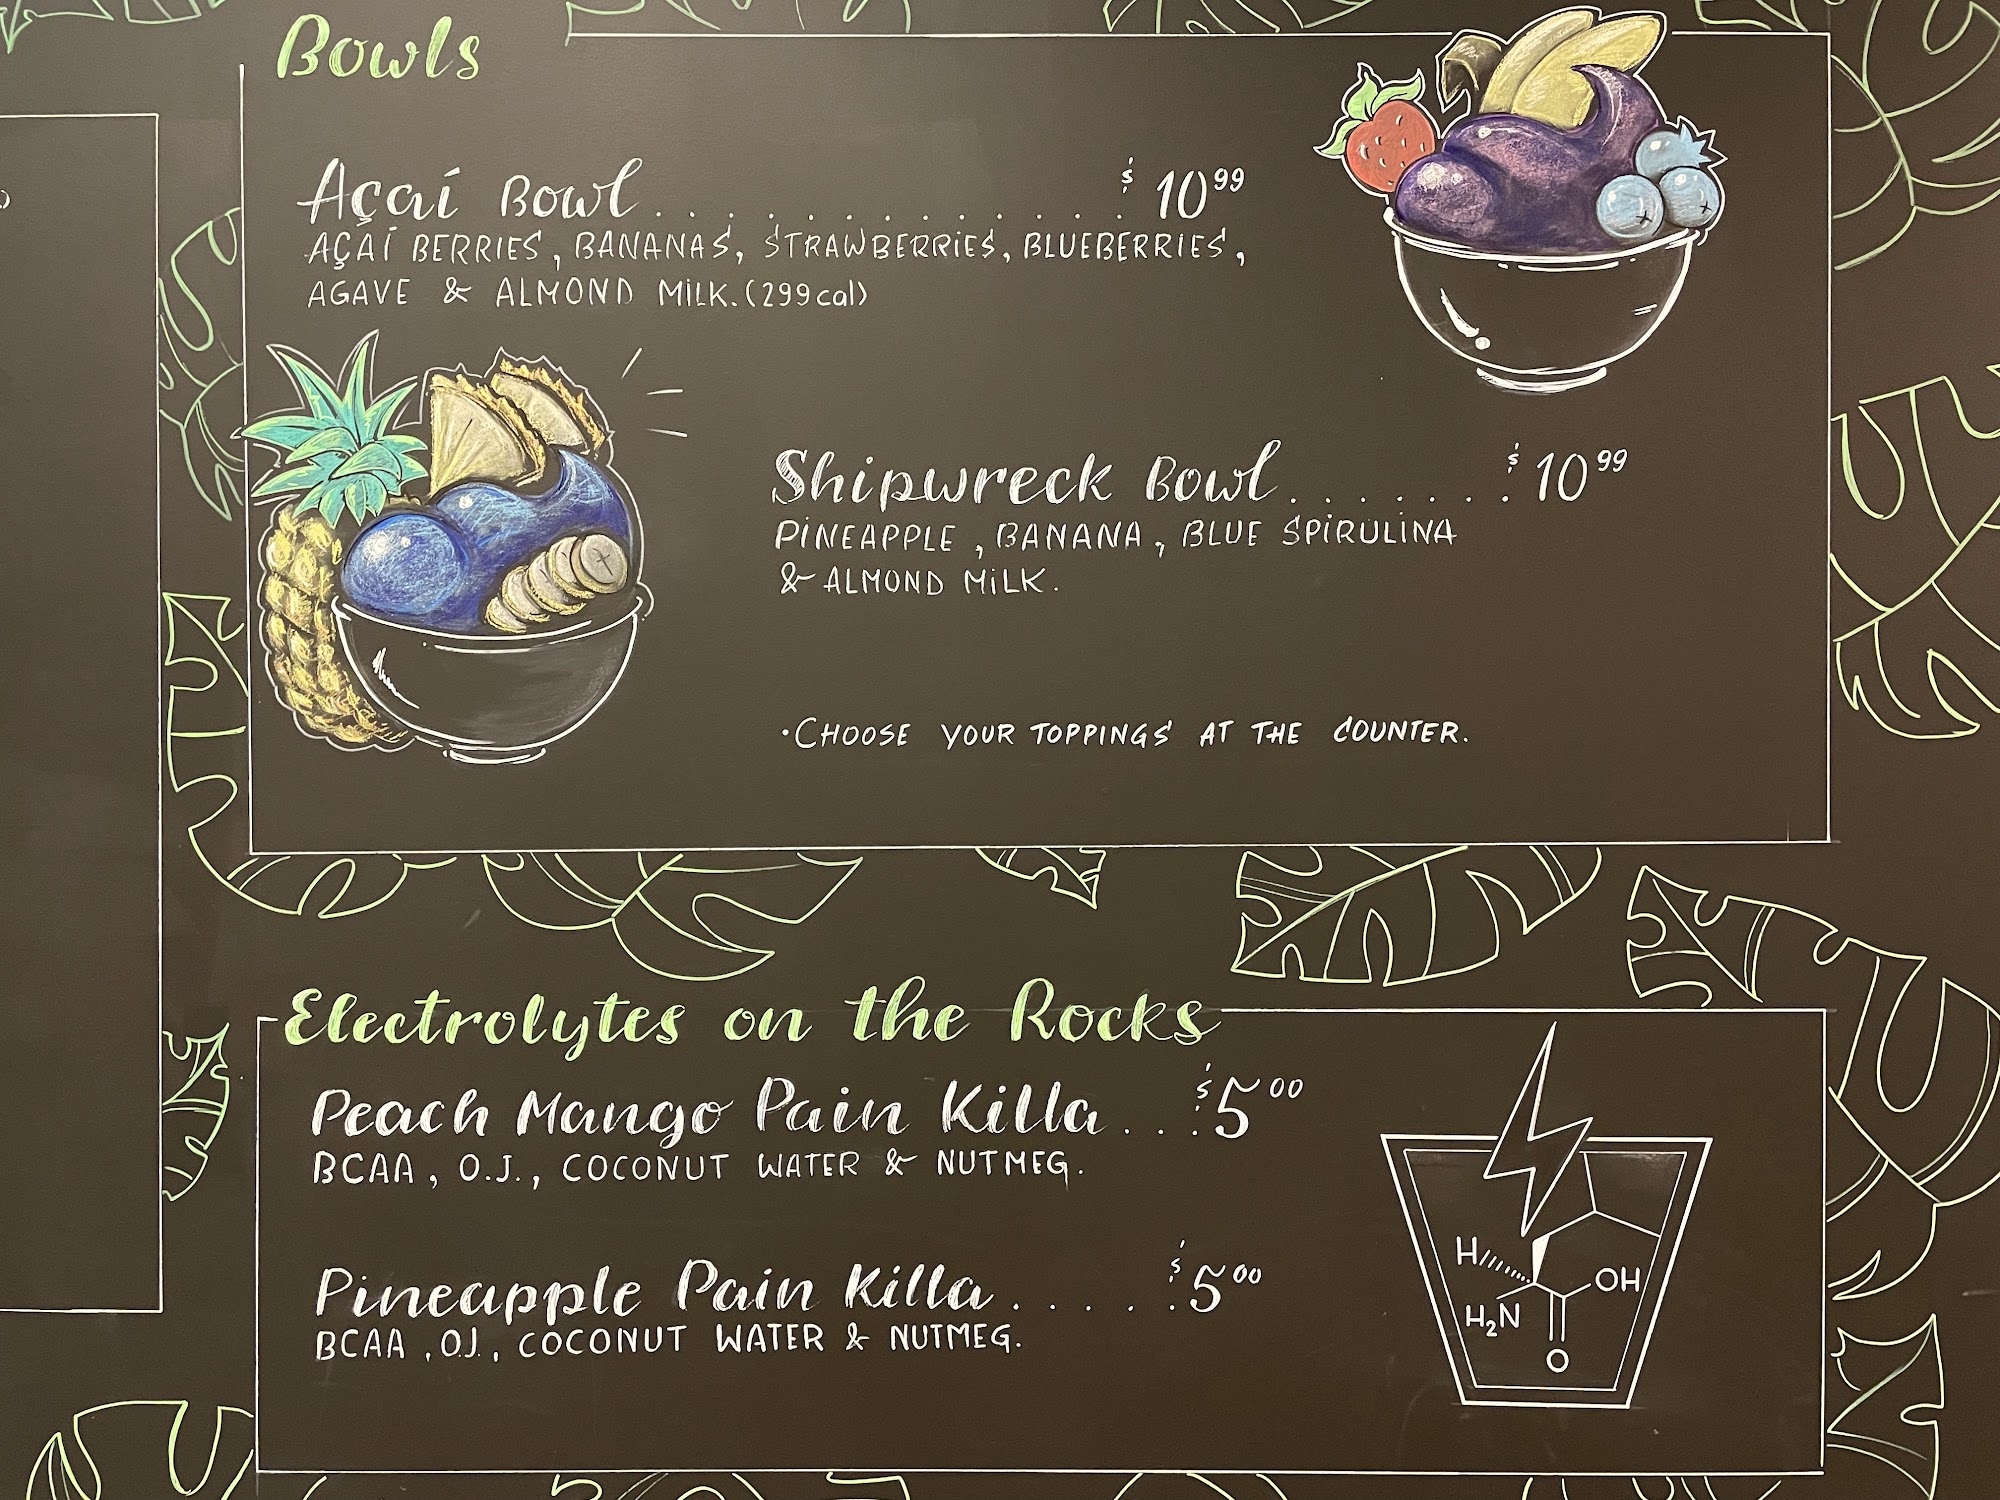 Bowls
Açaí Bowl.............$10.99
AÇAÍ BERRIES, BANANAS, STRAWBERRIES, BLUEBERRIES,
AGAVE & ALMOND MILK.(299cal)
Shipwreck Bowl.......$10.99
PINEAPPLE, BANANA, BLUE SPIRULINA
& ALMOND MILK.
•CHOOSE YOUR TOPPINGS AT THE COUNTER.
Electrolytes on the Rocks
Peach Mango Pain Killa...$5.00
BCAA, O.J., COCONUT WATER & NUTMEG.
Pineapple Pain Killa.....$5.00
BCAA, O.J., COCONUT WATER & NUTMEG.
H
OH
H₂N
O